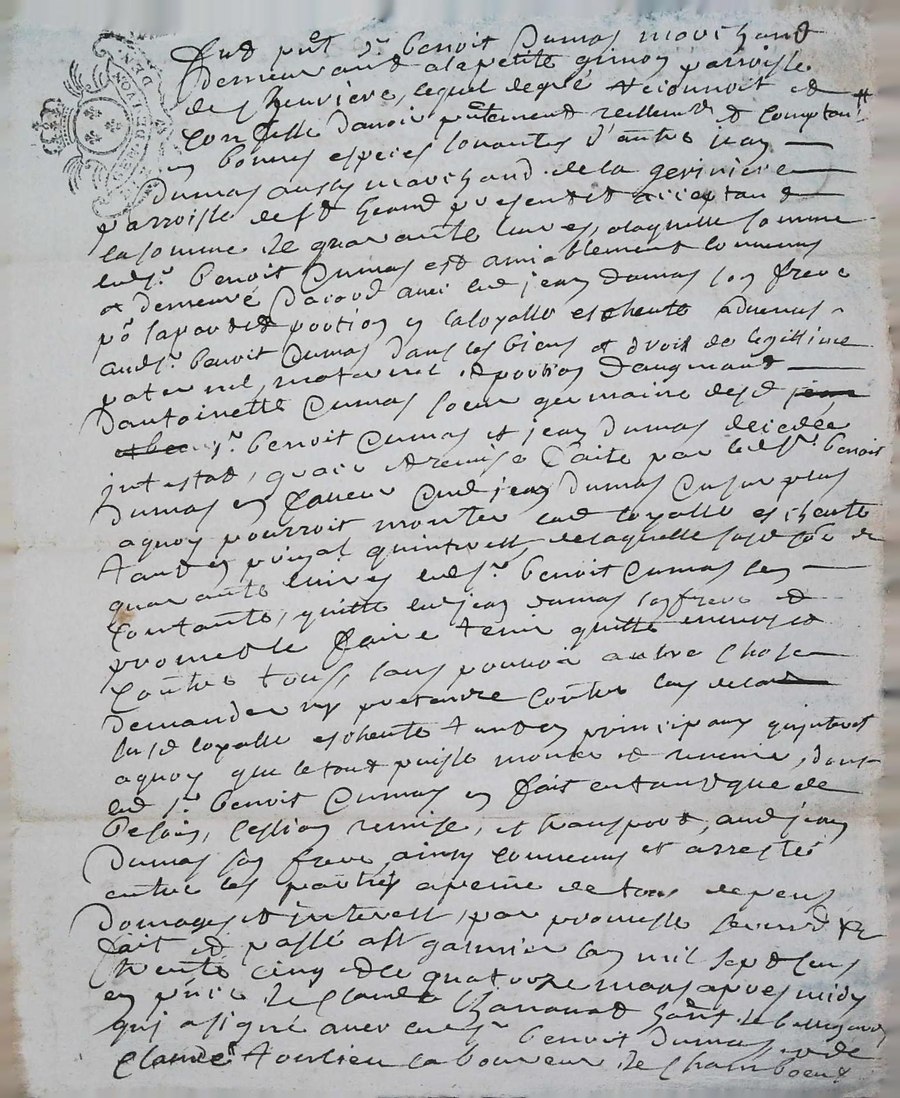 GEN. DE LION
Fut p̃nt sr. benoit Dumas marchand
demeurant a la petite grinoy parroisse
de Cheuriere, lequel de gré et reconnoit et
confesse dauoir p̃ntement reellemt. et comptant
en bonnes especes sonantes d'autre jean
Dumas aussy marchand de la geriniere
parroisse de st heand present et acceptant
la somme de quarante liures, a laquelle somme
led sr. benoit Dumas est amiablement conuenus
et demeuré dacord auec led jean Dumas son frere
po la part et portion en la loyalle escheute aduenus
aud sr. benoit Dumas dans les biens et droit de legittime
paternel, maternel et portion daugment
dantoinette Dumas soeur germaine desd
sr. benoit Dumas et jean Dumas decedée
intestat, remise faite par led sr. benoit
Dumas en faueur dud jean Dumas du surplus
a quoy pourroit monter lad loyalle escheute
tant en prinpal quinterest, de laquelle susd so͠e de
quarante liures led sr. benoit Dumas sen
contante, quitte led jean Dumas son frere et
promet le faire tenir quitte enuers et
contre tous, sans pouuoir autre chose
demander ny pretendre contre luy de la
susd loyalle escheute tant en principaux quinterest
a quoy que le tout puisse monter et reuenir, dont
led sr. benoit Dumas en fait en tant que de
besoin, cession remise, et transport, aud jean
Dumas son frere, ainsy conuenus et arresté
entre les parties a peine de tous depens
domages et interest, par promesse sermt. &c
fait et passé a st garmier lan mil sept cens
trente cinq et le quatorze mars apres midy
en p̃nce de Claude
qui a signé auec led sr. benoit Dumas, et de
Claude laboureur de Chamboeuf